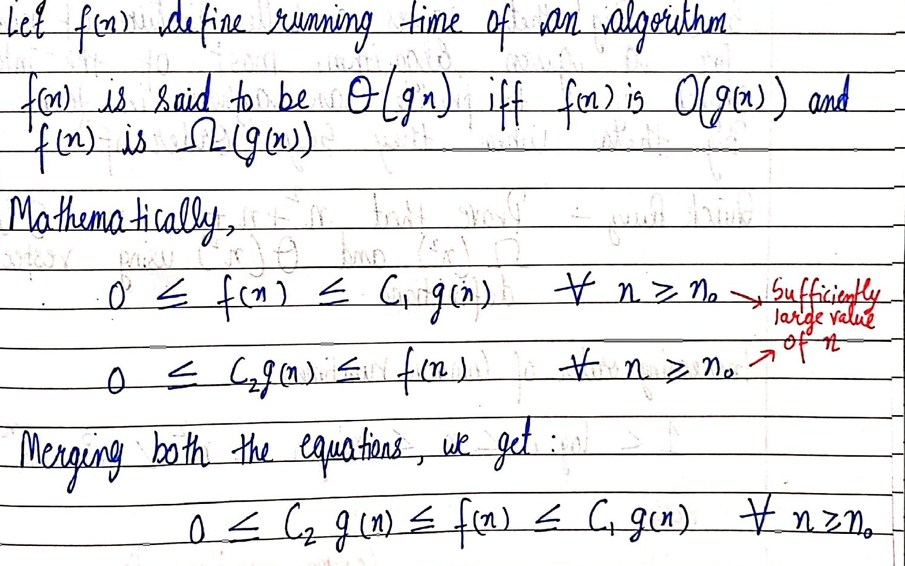 Let f(n) define running time of an algorithm
f(n) is said to be θ(gn) iff f(n) is O(g(n)) and
f(n) is Ω(g(n))
Mathematically,
0 ≤ f(n) ≤ C₁ g(n) ∀ n ≥ n₀ → Sufficiently
large value
of n
0 ≤ C₂g(n) ≤ f(n) ∀ n ≥ n₀ ↗
Merging both the equations, we get :
0 ≤ C₂ g(n) ≤ f(n) ≤ C₁ g(n) ∀ n ≥ n₀